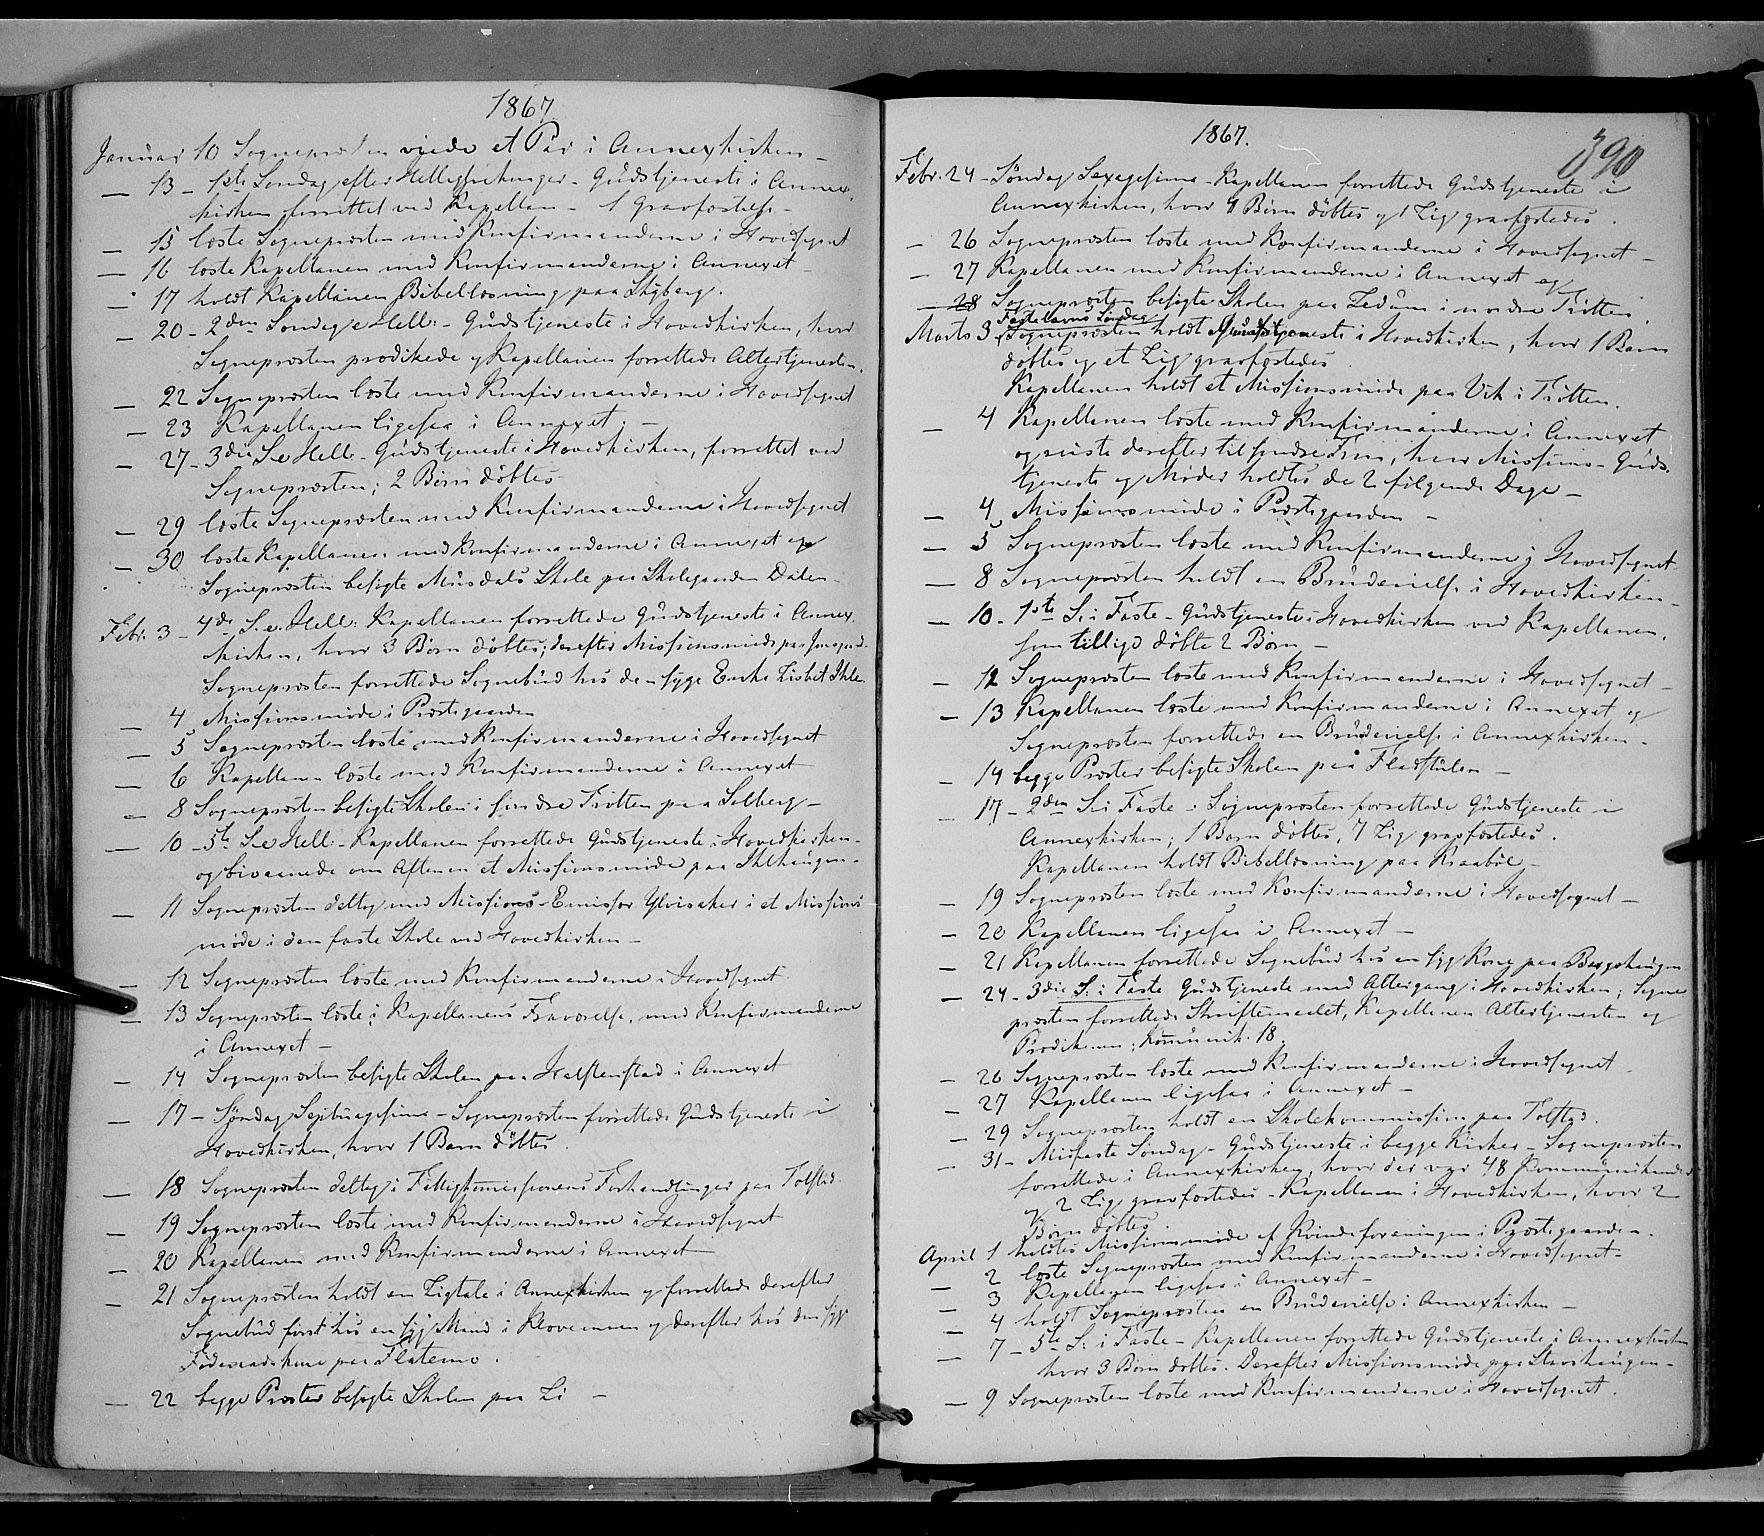 1867
Januar 10 Sognepræsten viede et Par i Annexkirken –
— 13 – 1ste Søndag efter Helligtrekonger – Gudstjeneste i Annex
kirken forrettet ved Kapellan – 1 Gravfæstelse –
— 15 læste Sognepræsten med Konfirmanderne i Hovedsognet
— 16 læste Kapellanen med Konfirmanderne i Annexet –
— 17 holdt Kapellanen Bibellæsning paa Skyberg.
— 20 – 2den Søndag e Hell: – Gudstjeneste i Hovedkirken, hvor
Sognepræsten prædikede og Kapellanen forrettede Altertjenesten.
— 22 Sognepræsten læste med Konfirmanderne i Hovedsognet
— 23 Kapellanen ligesaa i Annexet. –
— 27 – 3die S. e Hell – Gudstjeneste i Hovedkirken, forrettet ved
Sognepræsten; 2 Børn døbtes
— 29 læste Sognepræsten med Konfirmanderne i Hovedsognet
— 30 læste Kapellanen med Konfirmanderne i Annexet og
Sognepræsten besøgte Musdals Skole paa Skolegaarden
Febr. 3 – 4de S. e. Hell: Kapellanen forrettede Gudstjeneste i Annex
kirken, hvor 3 Børn døbtes; derefter Missionsmøde paa
Sognepræsten forrettede Sognebud hos den syge Enke Lisbet
— 4 Missionsmøde i Præstegaarden
— 5 Sognepræsten læste med Konfirmanderne i Hovedsognet
— 6 Kapellanen læste med Konfirmanderne i Annexet
— 8 Sognepræsten besøgte Skolen i søndre Trøtten paa Solberg –
— 10 – 5te S. e Hell: – Kapellanen forrettede Gudstjeneste i Hovedkirken –
og bivaanede om Aftenen et Missionsmøde paa
— 11 Sognepræsten deltog med Missions-Emissær Ylvisaker i et Missions
møde i den faste Skole ved Hovedkirken –
— 12 Sognepræsten læste med Konfirmanderne i Hovedsognet
— 13 Sognepræsten læste, i Kapellanens Fraværelse, med Konfirmanderne
i Annexet –
— 14 Sognepræsten besøgte Skolen paa i Annexet
— 17 – Søndag Septuagesima – Sognepræsten forrettede Gudstjeneste i
Hovedkirken, hvor 1 Barn døbtes.
— 18 Sognepræsten deltog i Fattigkommissionens Forhandlinger paa Tolstad.
— 19 Sognepræsten læste med Konfirmanderne i Hovedsognet
— 20 Kapellanen med Konfirmanderne i Annexet
— 21 Sognepræsten holdt en Ligtale i Annexkirken og forrettede derefter
Sognebud først hos en syg Mand i og derefter hos den syge
Føderaadskone paa
— 22 begge Præster besøgte Skolen paa Li –
1867.
390
Febr. 24 – Søndag Sexagesima – Kapellanen forrettede Gudstjeneste i
Annexkirken, hvor Børn døbtes og 1 Lig gravfæstedes.
— 26 Sognepræsten læste med Konfirmanderne i Hovedsognet –
— 27 Kapellanen med Konfirmanderne i Annexet og
— 28 Sognepræsten besøgte Skolen paa i nordre Trøtten.
Fastelavns Søndag
Marts 3 Sognepræsten holdt Gudstjeneste i Hovedkirken, hvor 1 Barn
døbtes og et Lig gravfæstedes.
Kapellanen holdt et Missionsmøde paa Vik i Trøtten.
— 4 Kapellanen læste med Konfirmanderne i Annexet
og reiste derefter til søndre Fron, hvor Missions-Guds-
tjeneste og Møder holdtes de 2 følgende Dage –
— 4 Missionsmøde i Præstegaarden –
— 5 Sognepræsten læste med Konfirmanderne i Hovedsognet
— 8 Sognepræsten holdt en Brudevielse i Hovedkirken –
— 10 – 1ste S. i Faste – Gudstjeneste i Hovedkirken ved Kapellanen,
som tillige døbte 2 Børn –
— 12 Sognepræsten læste med Konfirmanderne i Hovedsognet –
— 13 Kapellanen læste med Konfirmanderne i Annexet og
Sognepræsten forrettede en Brudevielse i Annexkirken –
— 14 begge Præster besøgte Skolen paa –
— 17 – 2den S. i Faste – Sognepræsten forrettede Gudstjeneste i
Annexkirken; 1 Barn døbtes, 7 Lig gravfæstedes.
Kapellanen holdt Bibellæsning paa Kraabøl –
— 19 Sognepræsten læste med Konfirmanderne i Hovedsognet –
— 20 Kapellanen ligesaa i Annexet –
— 21 Kapellanen forrettede Sognebud hos en syg Kone paa
— 24 – 3die S: i Faste Gudstjeneste med Altergang i Hovedkirken; Sogne
præsten forrettede Skriftemaalet, Kapellanen Altertjenesten og
Prædikenen; Kommunik. 18.
— 26 Sognepræsten læste med Konfirmanderne i Hovedsognet.
— 27 Kapellanen ligesaa i Annexet –
— 29 Sognepræsten holdt en Skolekommission paa Tolstad.
— 31 – Midfaste Søndag – Gudstjeneste i begge Kirker – Sognepræsten
forrettede i Annexkirken, hvor der var 48 Kommunikander
og 2 Lig gravfæstedes – Kapellanen i Hovedkirken, hvor 2
Børn døbtes.
April 1 holdtes Missionsmøde af Kvindeforeningen i Præstegaarden.
— 2 læste Sognepræsten med Konfirmanderne i Hovedsognet –
— 3 Kapellanen ligesaa i Annexet –
— 4 holdt Sognepræsten en Brudevielse i Annexkirken –
— 7 – 5te S: i Faste – Kapellanen forrettede Gudstjeneste i Annexkirken
hvor 3 Børn døbtes. Derefter Missionsmøde paa
— 9 Sognepræsten læste med Konfirmanderne i Hovedsognet.